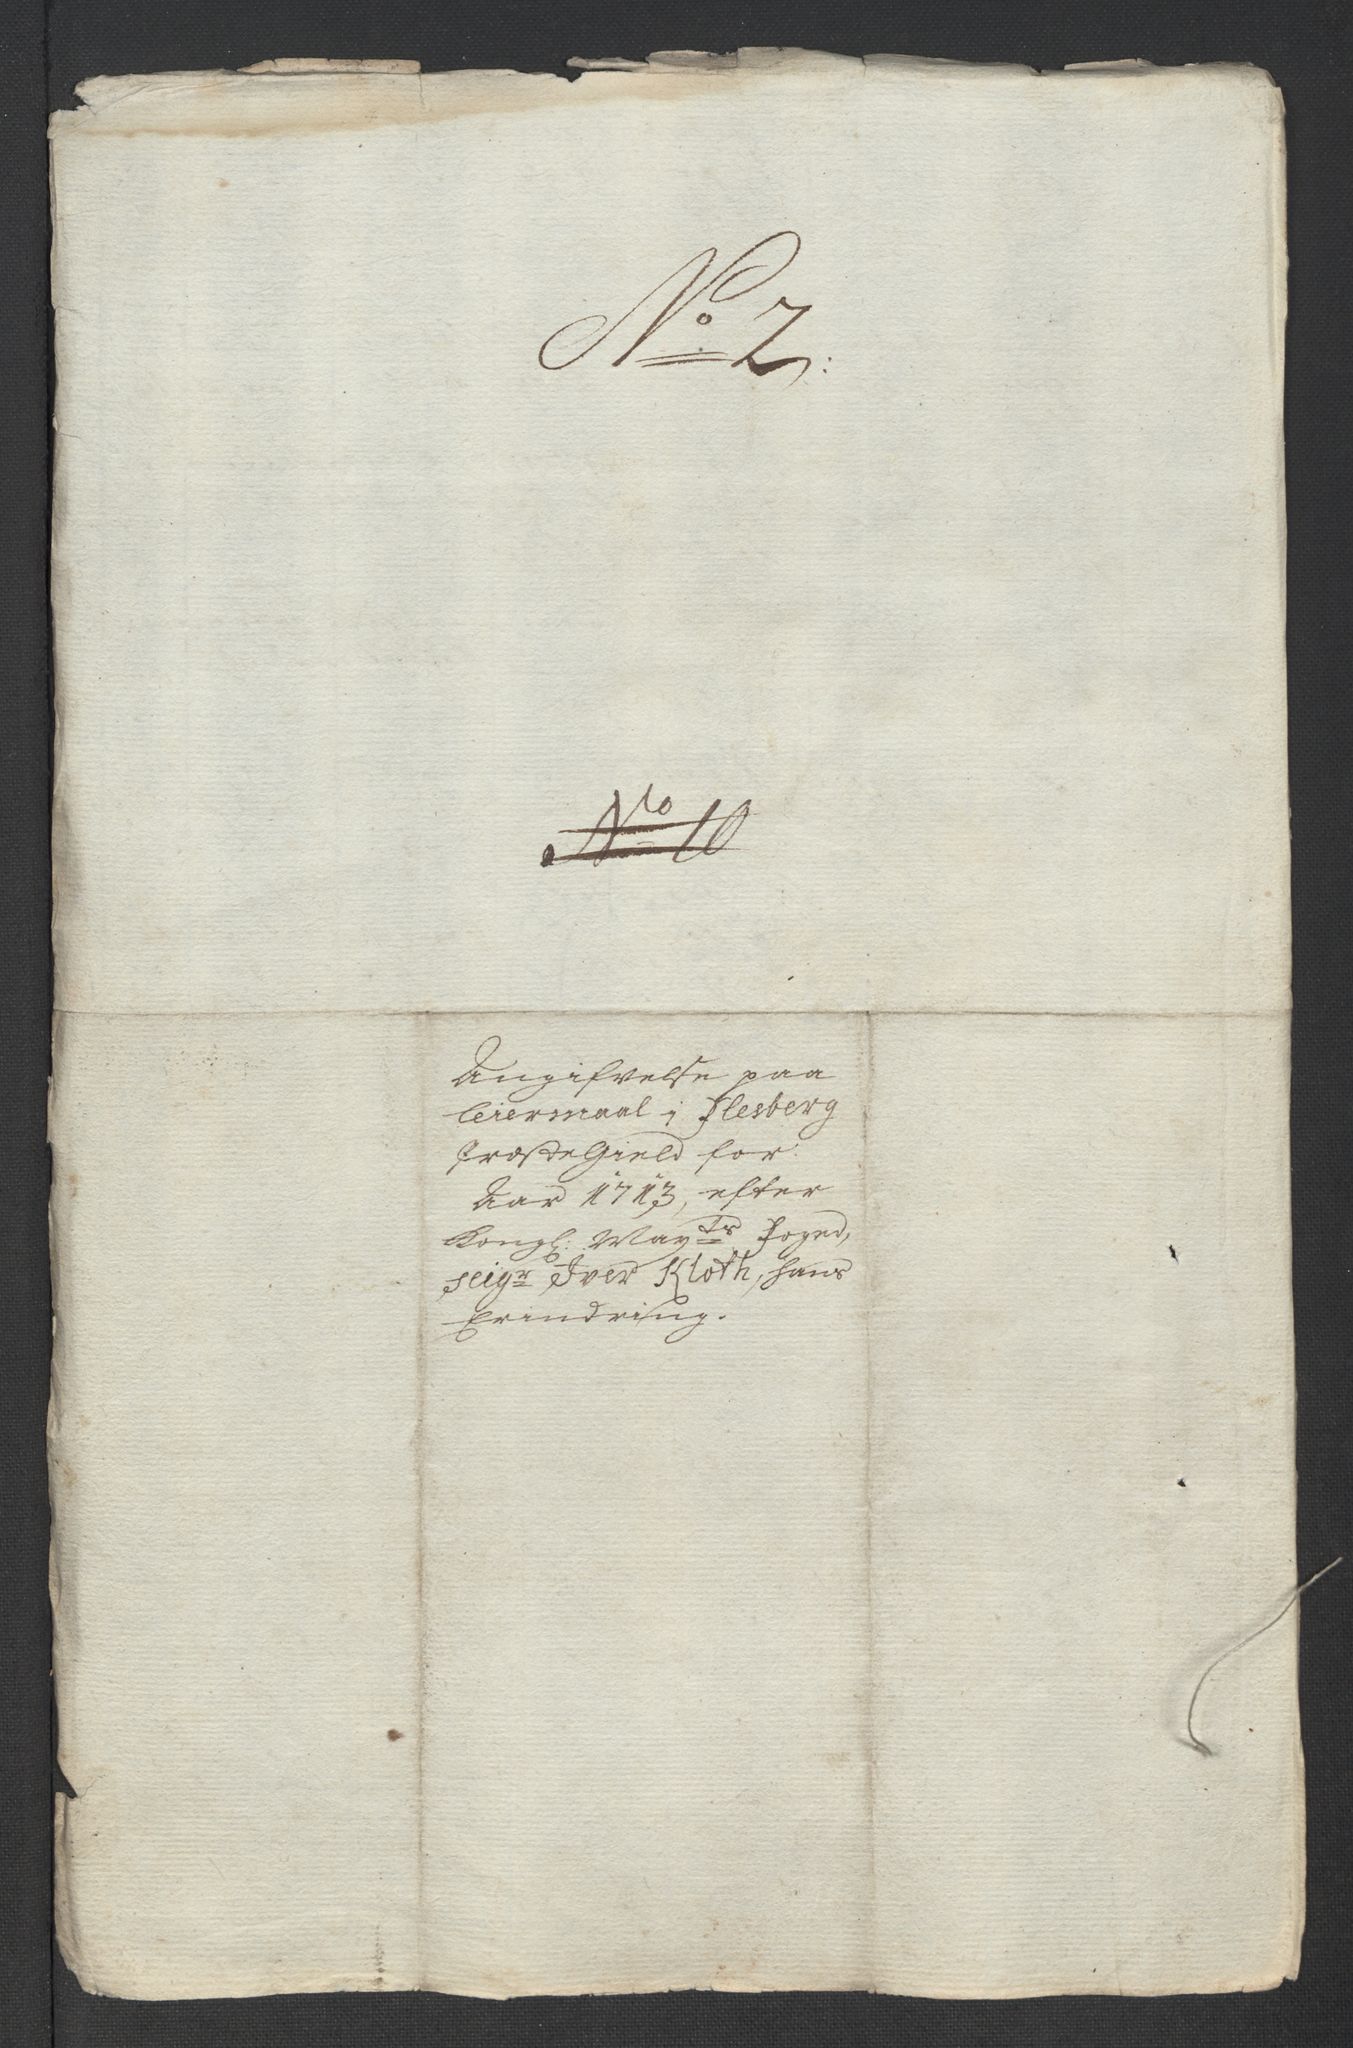 No 2:
No 10
Angifvelse paa
Leiermaal i Flesberg
PræsteGield for
Aar 1713, efter
Kongl: Mayts Foged,
Seigr Iver Kloth, hans
Erindring.